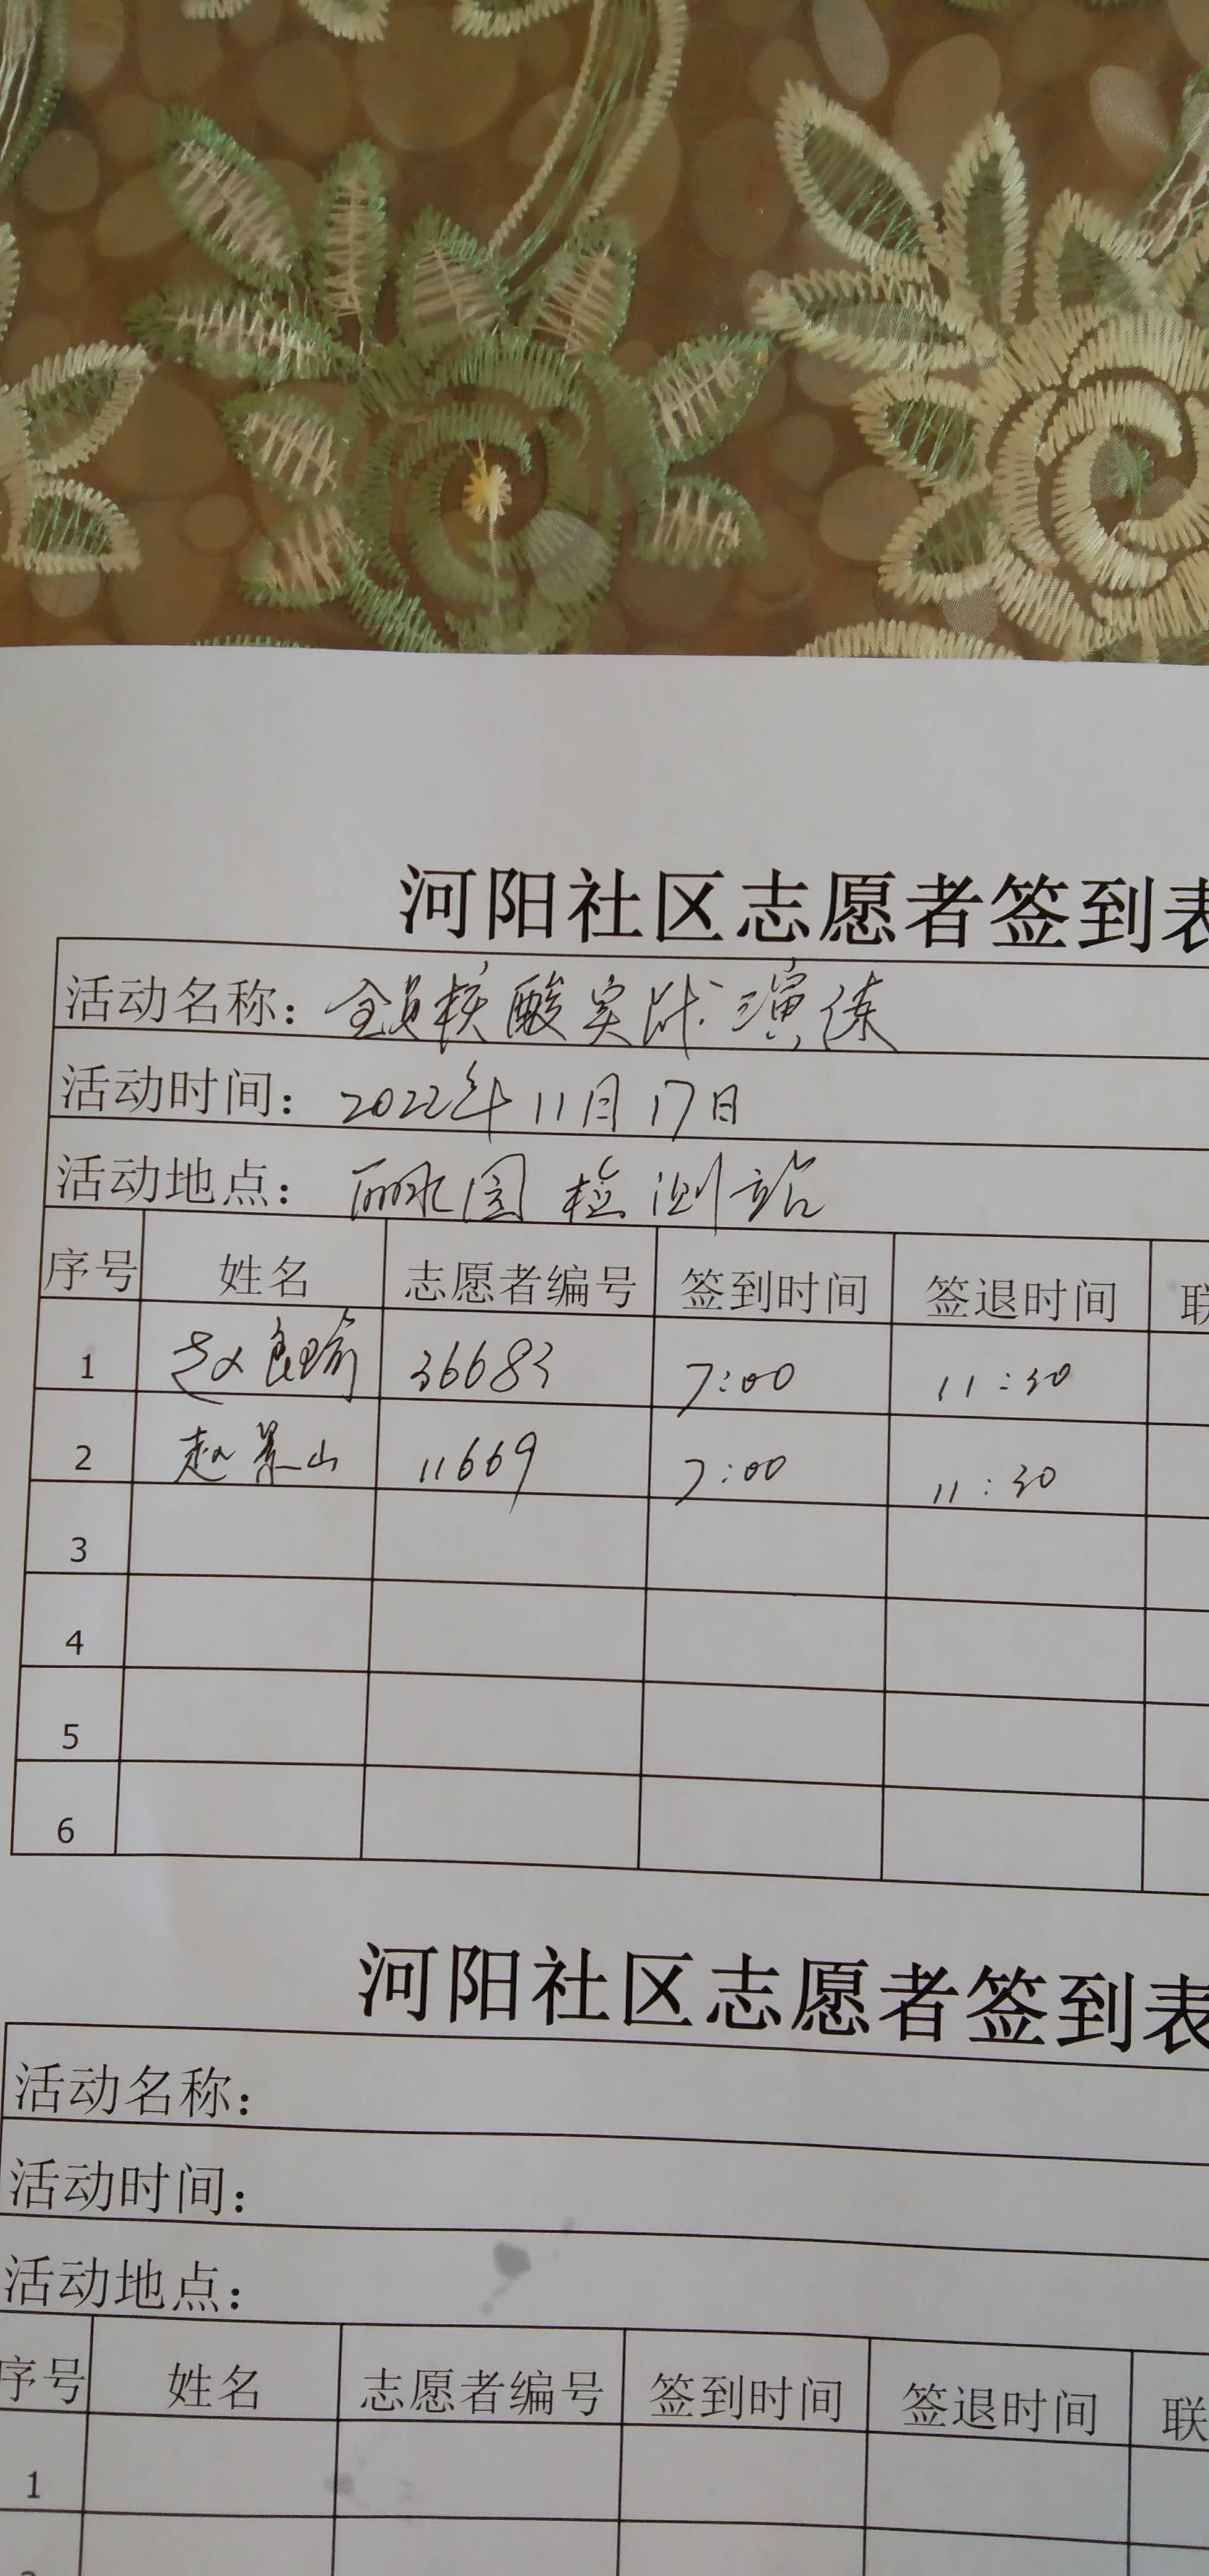 河阳社区志愿者签到表
活动名称：全员核酸实战演练
活动时间：2022年11月17日
活动地点：丽水园 检测站
序号 姓名 志愿者编号 签到时间 签退时间 联
1 赵良瑜 36683 7:00 11:30
2 赵景山 11669 7:00 11:30
3
4
5
6
河阳社区志愿者签到表
活动名称：
活动时间：
活动地点：
序号 姓名 志愿者编号 签到时间 签退时间 联
1